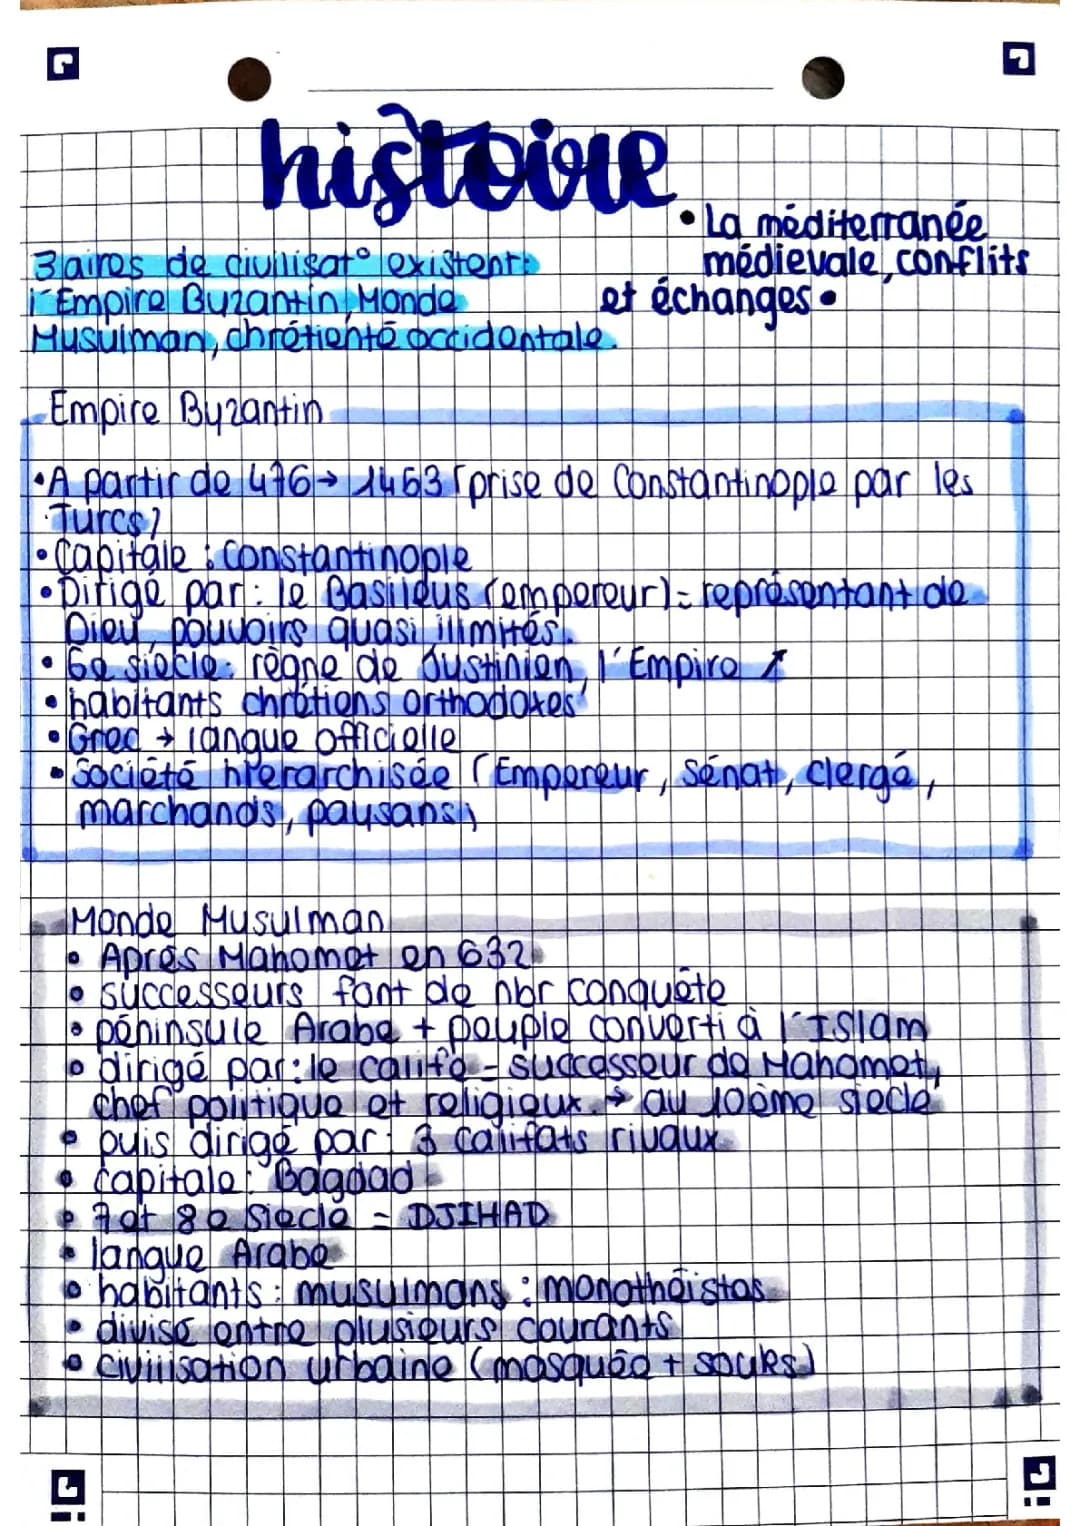 histoire
• La méditerranée
médievale, conflits
et échanges •
3 aires de civilisat° existent:
l'Empire Byzantin, Monde
Musulman, chrétienté occidentale.
Empire Byzantin
• A partir de 476 → 1453 (prise de Constantinople par les
Turcs)
• Capitale : Constantinople
• Dirigé par : le Basileus (empereur) = représentant de
Dieu, pouvoirs quasi ilimités.
• 6e siècle: règne de Justinien, l'Empire ↗
• habitants chrétiens orthodoxes
• Grec → langue officielle
• Société hierarchisée (Empereur, Sénat, clergé,
marchands, paysans)
Monde Musulman
• Après Mahomet en 632
• successeurs font de nbr conquête
• péninsule Arabe + peuple converti à l'Islam
• dirigé par: le calife = successeur de Mahomet,
chef politique et religieux. → au 10ème siecle
• puis dirigé par : 3 califats rivaux
• capitale: Bagdad
• 7 et 8e siecle = DJIHAD
• langue Arabe
• habitants : musulmans : monothéistes
• divisé entre plusieurs courants
• civilisation urbaine (mosquée + souks)